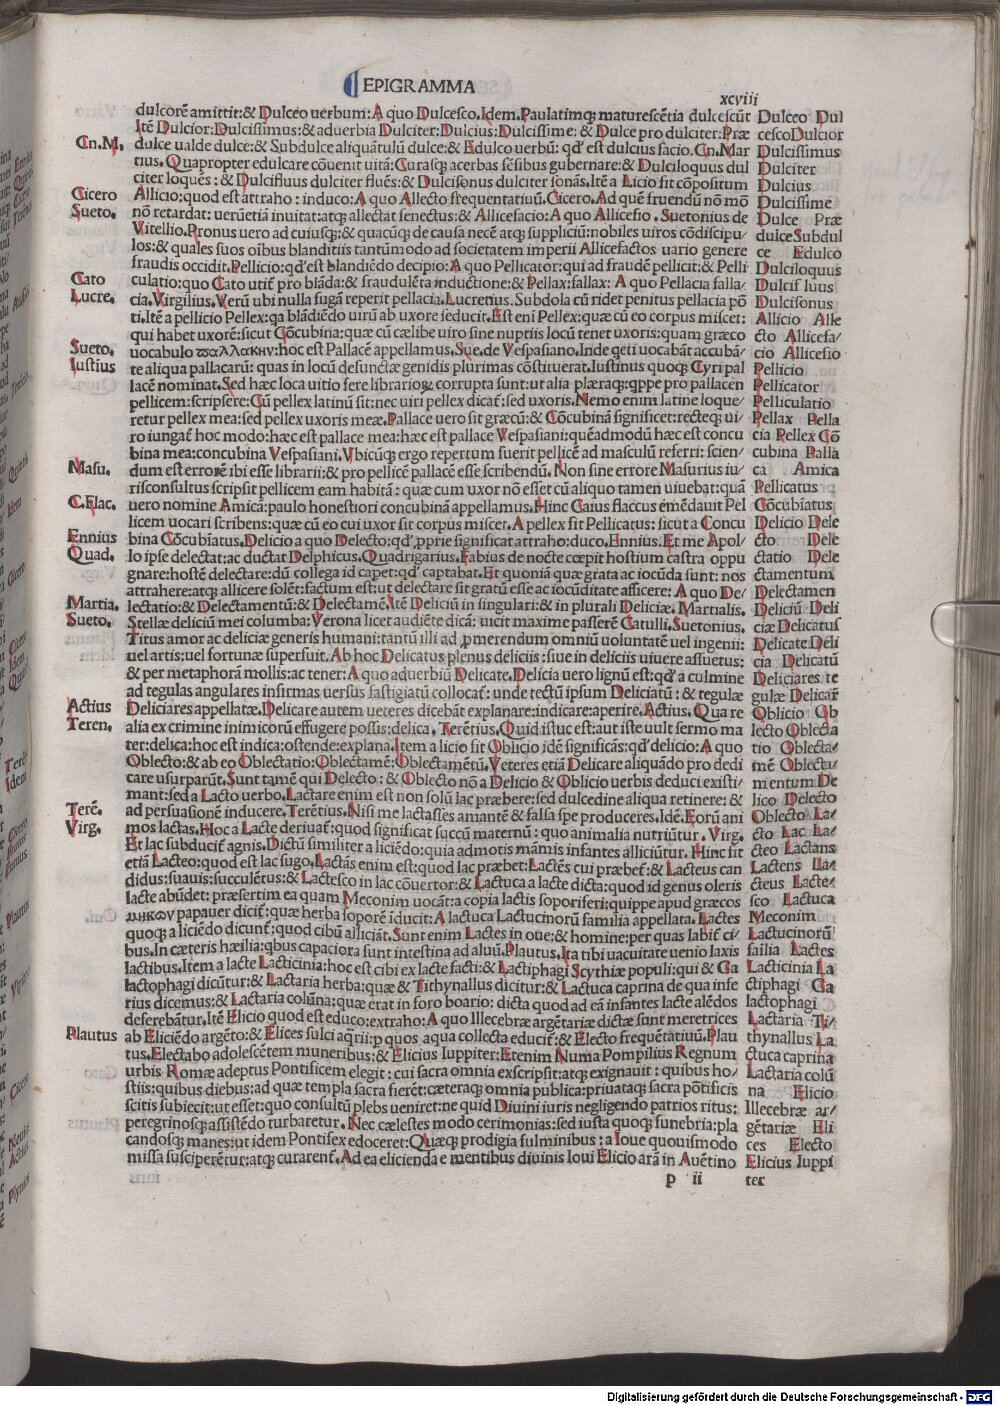 EPIGRAMMA
xcviii
dulcorē amittit:& Dulceo uerbum:A quo Dulcesco.Idem.Paulatimqȝ maturescētia dulcescūt
Itē Dulcior:Dulcissimus:& aduerbia Dulciter:Dulcius:Dulcissime:& Dulce pro dulciter:Præ
dulce ualde dulce:& Subdulce aliquātulū dulce:& Edulco uerbū: qd' est dulcius facio.Cn.Mar
tius.Quapropter edulcare cōuenit uitā:Curasqȝ acerbas sēsibus gubernare:& Dulciloquus dul
citer loquēs:& Dulcifluus dulciter fluēs:& Dulcisonus dulciter sonās.Itē a Licio fit cōpositum
Allicio:quod est attraho:induco:A quo Allecto frequentatiuū.Cicero.Ad quē fruendū nō mō
nō retardat:ueruētia inuitat:atqȝ allectat senectus:& Allicefacio:A quo Allicefio.Suetonius de
Vitellio.Pronus uero ad cuiusqȝ:& quacūqȝ de causa necē atqȝ suppliciū:nobiles uiros cōdiscipu-
los:& quales suos oībus blanditiis tantūmodo ad societatem imperii Allicefactos uario genere
fraudis occidit.Pellicio:qd'est blandiēdo decipio:A quo Pellicator:qui ad fraudē pellicit:& Pelli
culatio:quo Cato utit̄ pro blāda:& fraudulēta inductione:& Pellax:fallax: A quo Pellacia falla-
cia.Virgilius.Verū ubi nulla fugā reperit pellacia.Lucretius.Subdola cū ridet penitus pellacia pō
ti.Itē a pellicio Pellex:qa blādiēdo uirū ab uxore seducit.Est enī Pellex:quæ cū eo corpus miscet:
qui habet uxorē:sicut Cōcubina:quæ cū cælibe uiro sine nuptiis locū tenet uxoris:quam græco
uocabulo παλλακην:hoc est Pallacē appellamus.Sue.de Vespasiano.Inde qeti uocabāt accubā-
te aliqua pallacarū: quas in locū defunctæ genidis plurimas cōstituerat.Iustinus quoqȝ Cyri pal
lacē nominat.Sed hæc loca uitio fere librarioꝝ corrupta sunt:ut alia plæraqȝ:qppe pro pallacen
pellicem:scripsere:Cū pellex latinū sit:nec uiri pellex dicat̄:sed uxoris.Nemo enim latine loque-
retur pellex mea:sed pellex uxoris meæ.Pallace uero sit græcū:& Cōcubinā significet:recteqȝ ui-
ro iungat̄ hoc modo:hæc est pallace mea:hæc est pallace Vespasiani:quēadmodū hæc est concu
bina mea:concubina Vespasiani.Vbicūqȝ ergo repertum fuerit pellicē ad masculū referri:scien-
dum est errorē ibi esse librarii:& pro pellicē pallacē esse scribendū.Non sine errore Masurius iu-
risconsultus scripsit pellicem eam habitā: quæ cum uxor nō esset cū aliquo tamen uiuebat:quā
uero nomine Amicā:paulo honestiori concubinā appellamus.Hinc Caius flaccus emēdauit Pel
licem uocari scribens:quæ cū eo cui uxor sit corpus miscet.A pellex fit Pellicatus:sicut a Concu
bina Cōcubīatus.Delicio a quo Delecto:qd' pprie significat attraho:duco.Ennius.Et me Apol-
lo ipse delectat:ac ductat Delphicus.Quadrigarius.Fabius de nocte cœpit hostium castra oppu
gnare:hostē delectare:dū collega id capet:qd' captabat.Et quoniā quæ grata ac iocūda sunt: nos
attrahere:atqȝ allicere solēt:factum est:ut delectare sit gratū esse ac iocūditate afficere:A quo De-
lectatio:& Delectamentū:& Delectamē.Itē Deliciū in singulari:& in plurali Deliciæ. Martialis.
Stellæ deliciū mei columba:Verona licet audiēte dicā: uicit maxime passerē Catulli.Suetonius.
Titus amor ac deliciæ generis humani:tantū illi ad pmerendum omniū uoluntatē uel ingenii:
uel artis:uel fortunæ superfuit.Ab hoc Delicatus plenus deliciis:siue in deliciis uiuere assuetus:
& per metaphorā mollis:ac tener:A quo aduerbiū Delicate.Delicia uero lignū est:qd' a culmine
ad tegulas angulares infirmas uersus fastigiatū collocat̄:unde tectū ipsum Deliciatū:& tegulæ
Deliciares appellatæ.Delicare autem ueteres dicebāt explanare:indicare:aperire.Actius.Qua re
alia ex crimine inimicorū effugere possis:delica. Terētius.Quid istuc est:aut iste uult sermo ma
ter:delica:hoc est indica:ostende:explana.Item a licio fit Oblicio idē significās:qd'delicio:A quo
Oblecto:& ab eo Oblectatio:Oblectamē:Oblectamētū.Veteres etiā Delicare aliquādo pro dedi
care usurparūt.Sunt tamē qui Delecto:& Oblecto nō a Delicio & Oblicio uerbis deduci existi-
mant:sed a Lacto uerbo.Lactare enim est non solū lac præbere:sed dulcedine aliqua retinere: &
ad persuasionē inducere.Terētius.Nisi me lactasses amantē & falsa spe produceres.Idē.Eorū ani
mos lactas.Hoc a Lacte deriuat̄:quod significat succū maternū:quo animalia nutriūtur.Virg.
Et lac subducit̄ agnis.Dictū similiter a liciēdo:quia admotis māmis infantes alliciūtur.Hinc fit
etiā Lacteo:quod est lac sugo.Lactās enim est:quod lac præbet:Lactēs cui præbet̄:& Lacteus can
didus:suauis:succulētus:& Lactesco in lac cōuertor:& Lactuca a lacte dicta:quod id genus oleris
lacte abūdet: præsertim ea quam Meconim uocāt:a copia lactis soporiferi:quippe apud græcos
μηκων papauer dicit̄:quæ herba soporē īducit:A lactuca Lactucinorū familia appellata.Lactes
quoqȝ a liciēdo dicunt̄:quod cibū alliciāt.Sunt enim Lactes in oue:& homine:per quas labit̄ ci-
bus.In cæteris hæilia:qbus capaciora sunt intestina ad aluū.Plautus.Ita tibi uacuitate uenio laxis
lactibus.Item a lacte Lacticinia:hoc est cibi ex lacte facti:& Lactiphagi Scythiæ populi:qui & Ga
lactophagi dicūtur:& Lactaria herba:quæ & Tithynallus dicitur:& Lactuca caprina de qua infe
rius dicemus:& Lactaria colūna:quæ erat in foro boario: dicta quod ad eā infantes lacte alēdos
deferebātur.Itē Elicio quod est educo:extraho: A quo Illecebræ argētariæ dictæ sunt meretrices
ab Eliciēdo argēto:& Elices sulci aqrii:p quos aqua collecta educit̄:& Electo frequētatiuū.Plau
tus.Electabo adolescētem muneribus:& Elicius Iuppiter:Etenim Numa Pompilius Regnum
urbis Romæ adeptus Pontificem elegit:cui sacra omnia exscripsit:atqȝ exignauit:quibus ho-
stiis:quibus diebus:ad quæ templa sacra fierēt:cæteraqȝ omnia publica:priuataqȝ sacra pōtificis
scitis subiecit:ut esset:quo consultū plebs ueniret:ne quid Diuini iuris negligendo patrios ritus:
peregrinosqȝ assistēdo turbaretur.Nec cælestes modo cerimonias:sed iusta quoqȝ funebria:pla
candosqȝ manes:ut idem Pontifex edoceret:Quæqȝ prodigia fulminibus:a Ioue quouismodo
missa susciperētur:atqȝ curarent̄.Ad ea elicienda e mentibus diuinis Ioui Elicio arā in Auētino
p ii
Cn.M.
Cicero
Sueto.
Cato
Lucre.
Sueto.
Iustius
Masu.
C.Flac.
Ennius
Quad.
Martia.
Sueto.
Actius
Teren.
Terē.
Virg.
Plautus
Dulceo Dul
cescoDulcior
Dulcissimus
Dulciter
Dulcius
Dulcissime
Dulce Præ
dulceSubdul
ce Edulco
Dulciloquus
Dulcif luus
Dulcisonus
Allicio Alle
cto Allicefa-
cio Allicefio
Pellicio
Pellicator
Pelliculatio
Pellax Pella
cia Pellex Cō
cubina Palla
ca Amica
Pellicatus
Cōcubīatus
Delicio Dele
cto Dele
ctatio Dele
ctamentum
Delectamen
Deliciū Deli
ciæ Delicatus
Delicate Deli
cia Delicatū
Deliciares te
gulæ Delicar̄
Oblicio Ob
lecto Oblecta
tio Oblecta-
mē Oblecta-
mentum De
lico Delecto
Oblecto La-
cto Lac La-
cteo Lactans
Lactens La-
cteus Lacte-
sco Lactuca
Meconim
Lactucinorū
faīlia Lactes
Lacticinia La
ctiphagi Ga
lactophagi
Lactaria Ti-
thynallus La
ctuca caprina
Lactaria colū
na Elicio
Illecebræ ar-
gētariæ Eli
ces Electo
Elicius Iuppi
ter
Digitalisierung gefördert durch die Deutsche Forschungsgemeinschaft - DFG